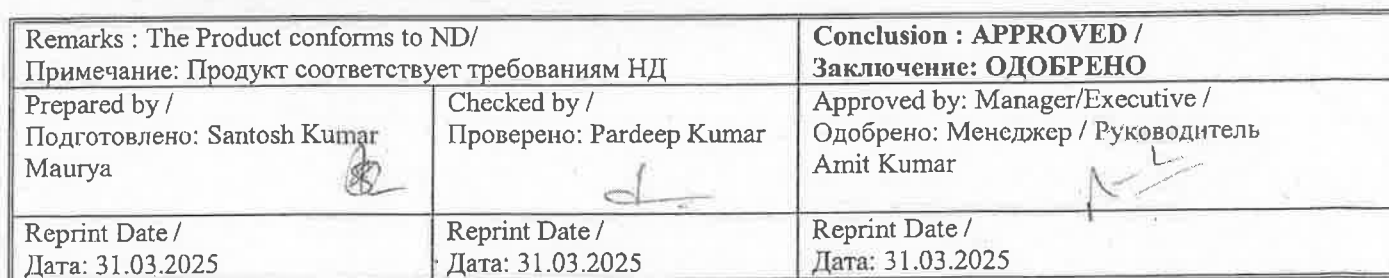 Remarks : The Product conforms to ND/
Примечание: Продукт соответствует требованиям НД
Conclusion : APPROVED /
Заключение: ОДОБРЕНО
Prepared by /
Подготовлено: Santosh Kumar
Maurya
Checked by /
Проверено: Pardeep Kumar
Approved by: Manager/Executive /
Одобрено: Менеджер / Руководитель
Amit Kumar
Reprint Date /
Дата: 31.03.2025
Reprint Date /
Дата: 31.03.2025
Reprint Date /
Дата: 31.03.2025